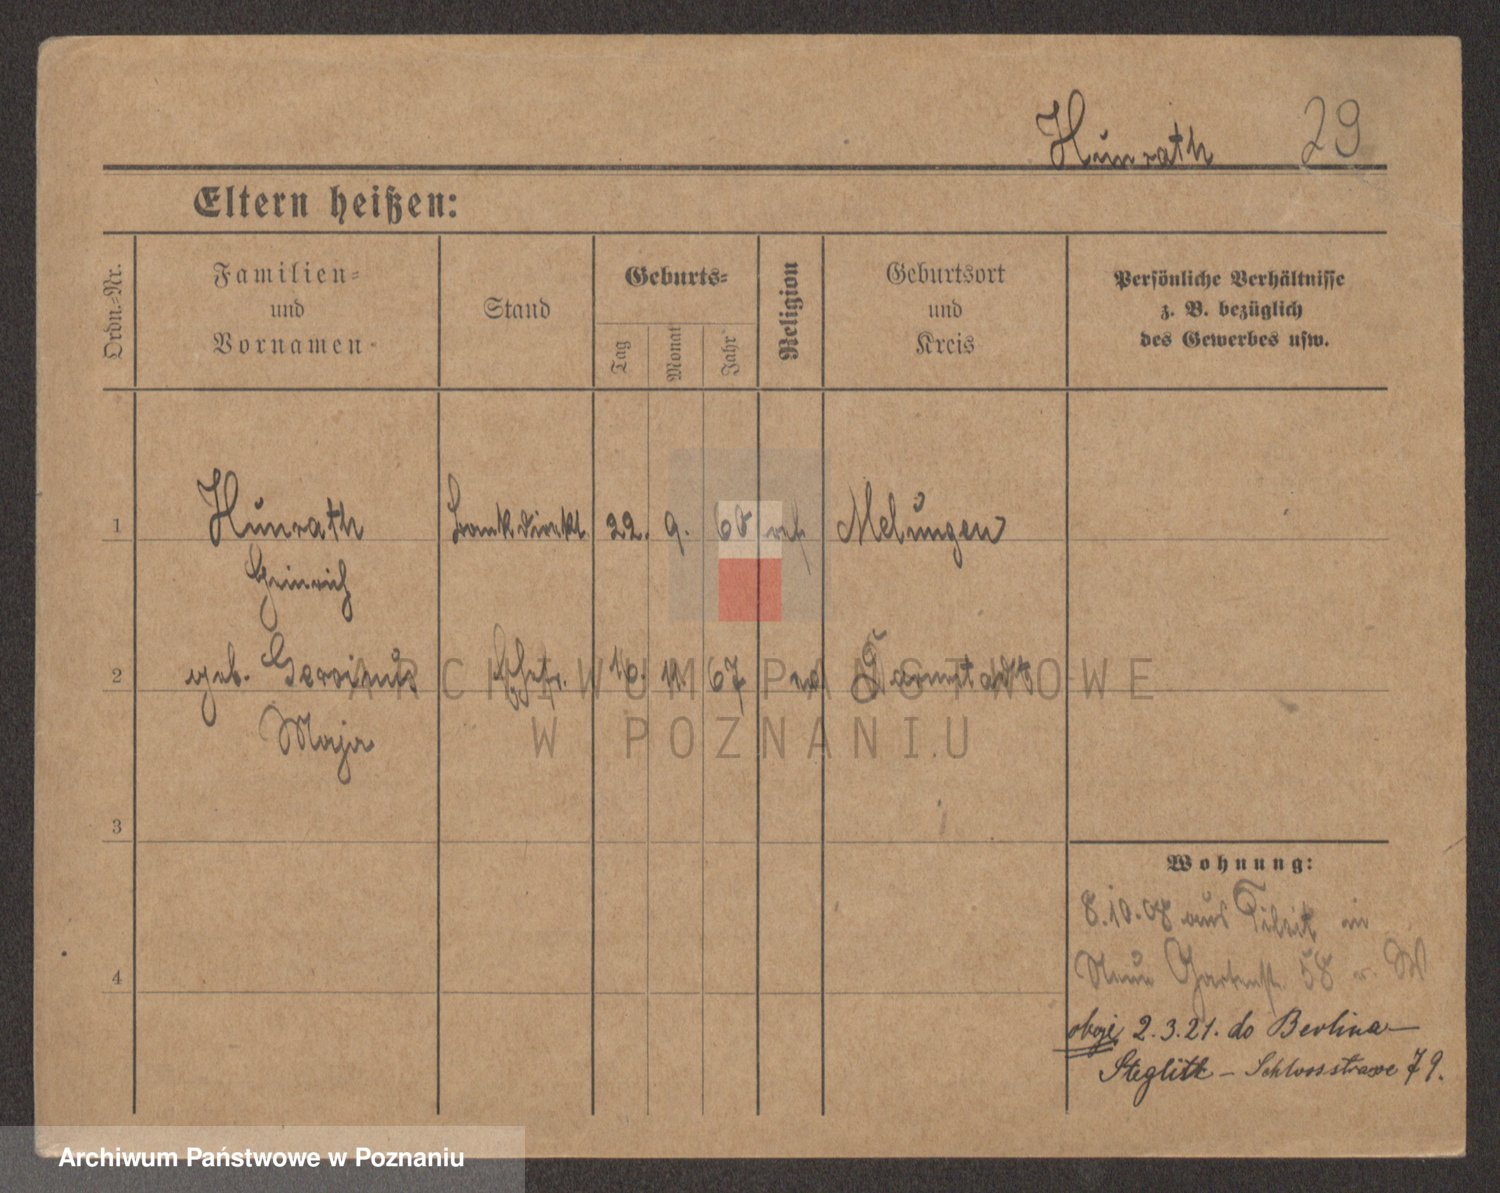 Hünrath 29
Eltern heißen:
Ordn.-Nr.
Familien-
und
Vornamen
Stand
Geburts-
Tag
Monat
Jahr
Religion
Geburtsort
und
Kreis
Persönliche Verhältnisse
z. B. bezüglich
des Gewerbes usw.
1 Hünrath Bankdirekt. 22. 9. 68 ref Melsungen
Heinrich
2 geb. Gervinus Ehefr. 16. 11. 67 ev Darmstadt
Maja
3
4
Wohnung:
8.10.08 aus Tilsit in
Neue Gartenst. 58 W
oboje 2.3.21. do Berlina
Steglitz - Schlossstrasse 79.
ARCHIWUM PAŃSTWOWE
W POZNANIU
Archiwum Państwowe w Poznaniu